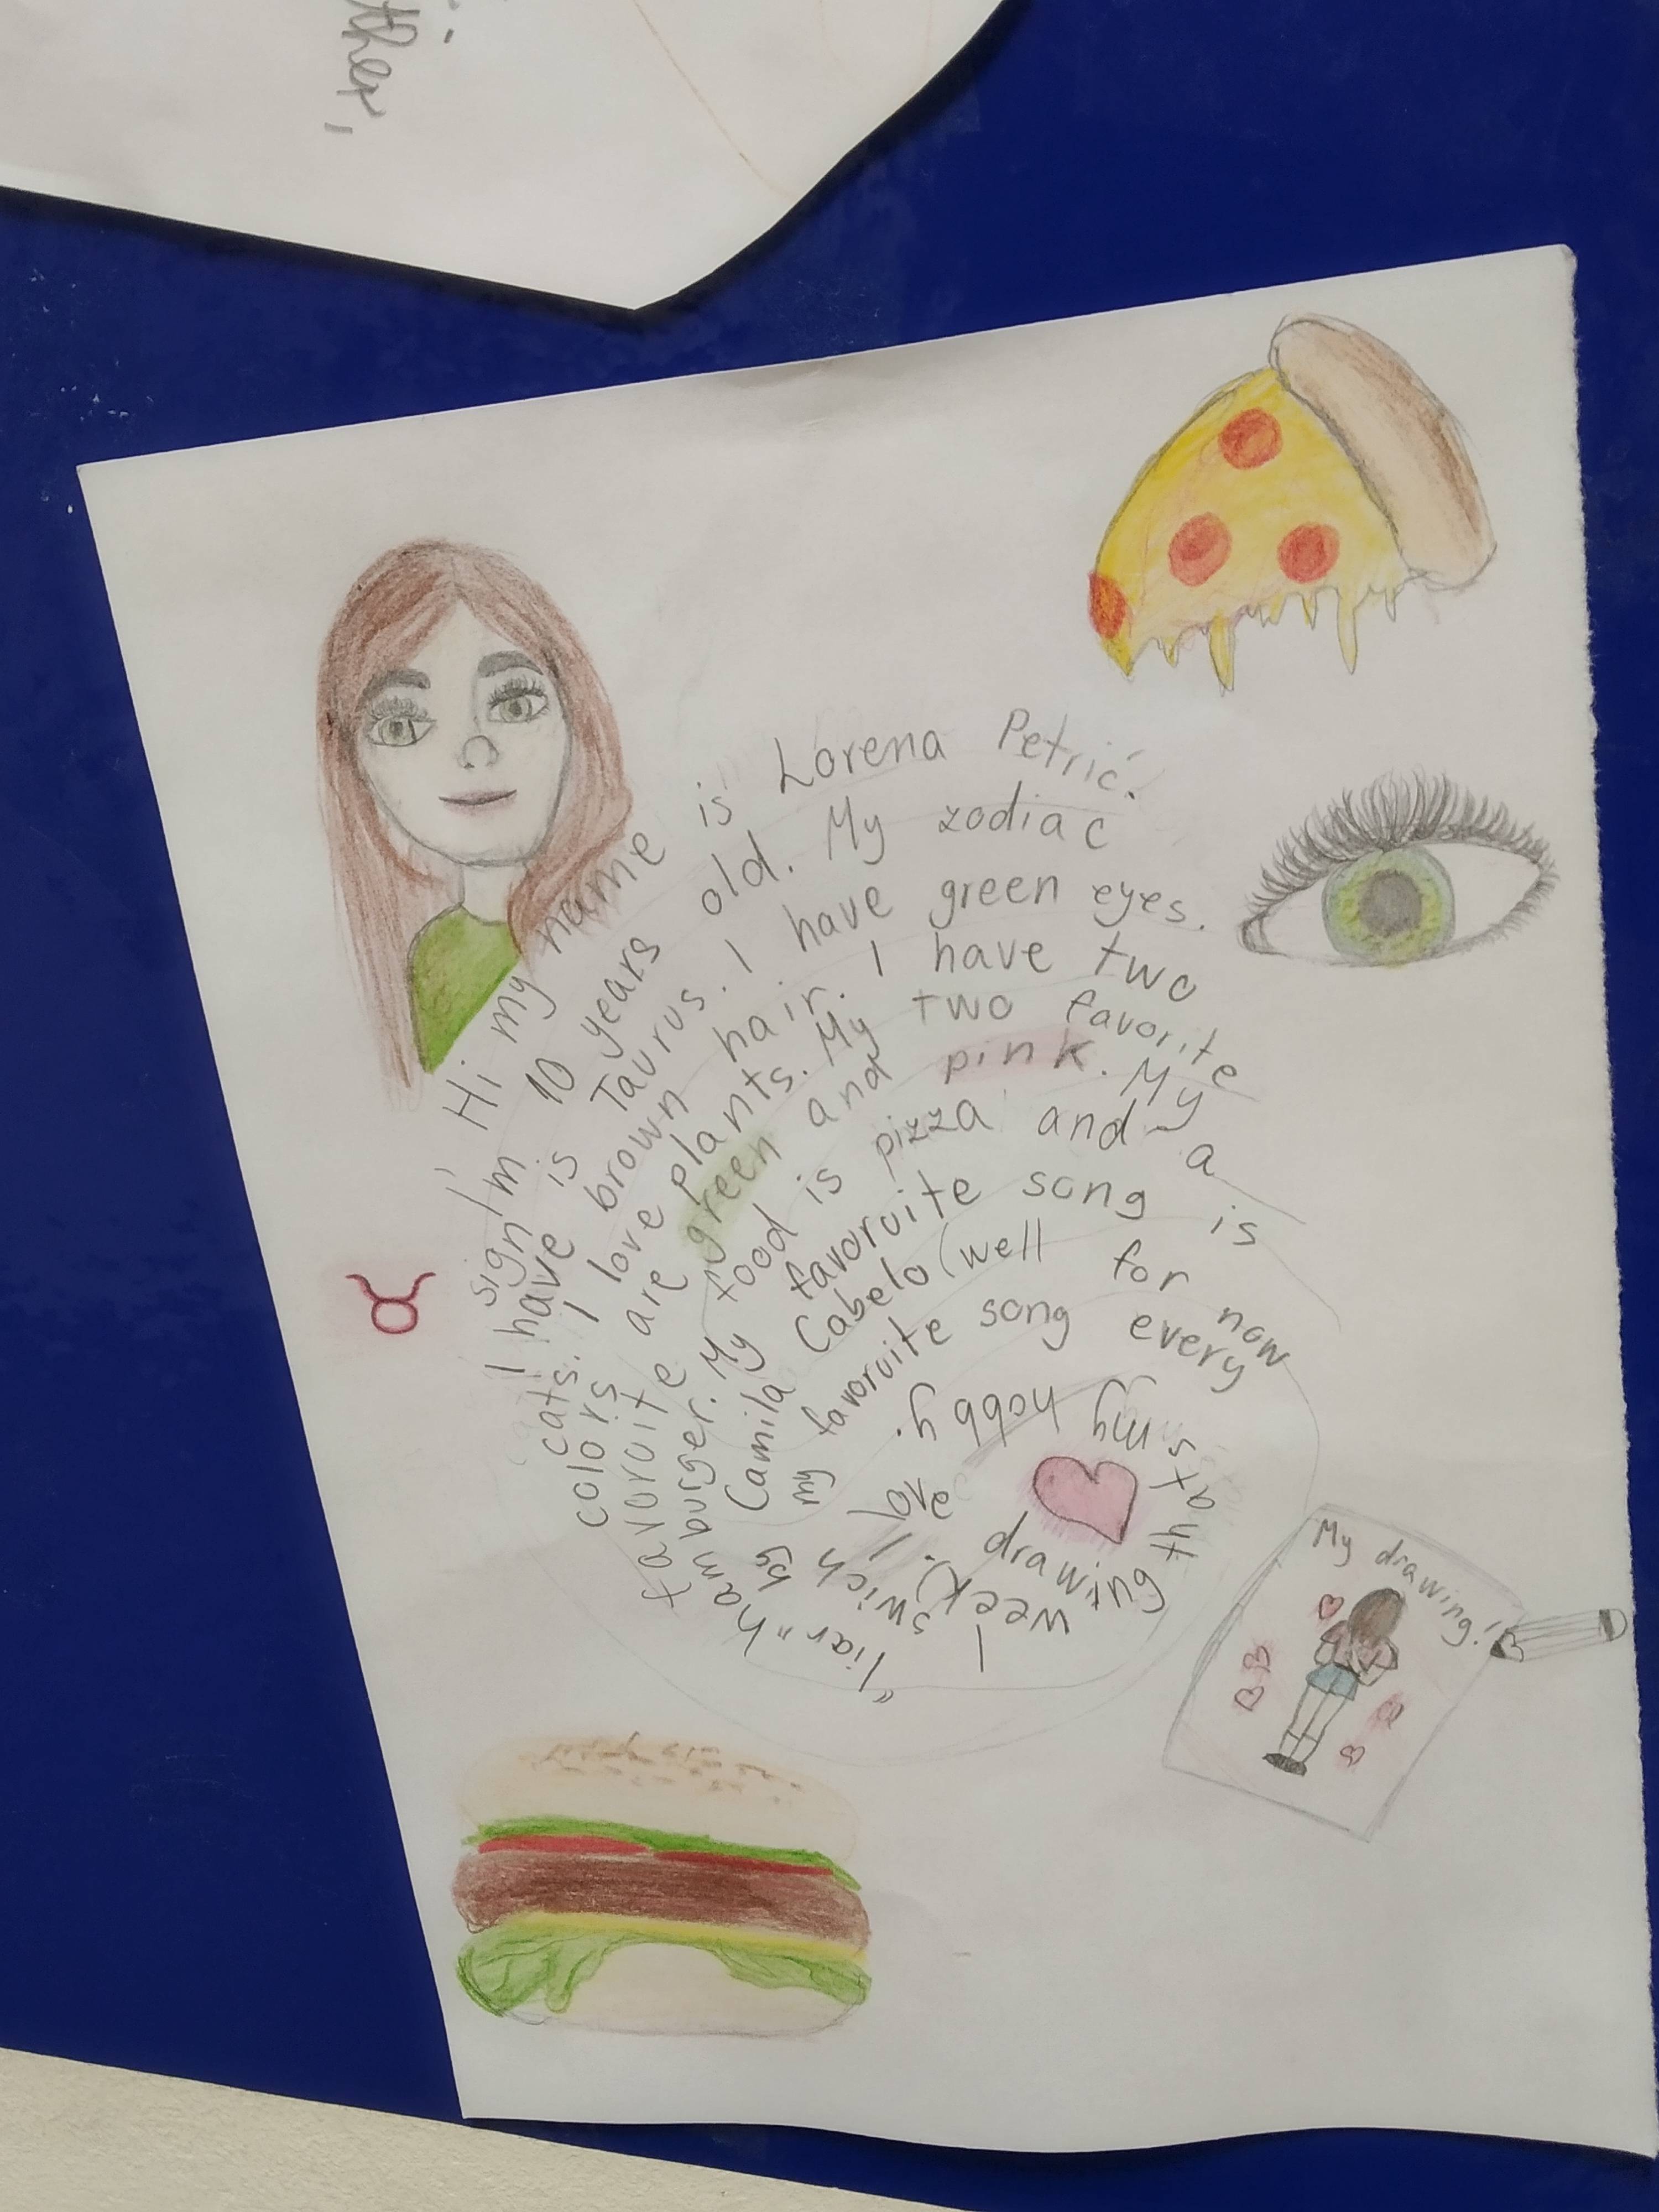 ther,
Hi my name is Lorena Petrić.
I'm 10 years old. My zodiac
sign is Taurus. I have green eyes.
I have brown hair. I have two
cats. I love plants. My two favorite
colors are green and pink. My
favoruite food is pizza and a
hamburger. My favoruite song is
"liar" by Camila Cabelo (well for now
I swich my favoruite song every
week). I love drawing that's my hobby.
My drawing!